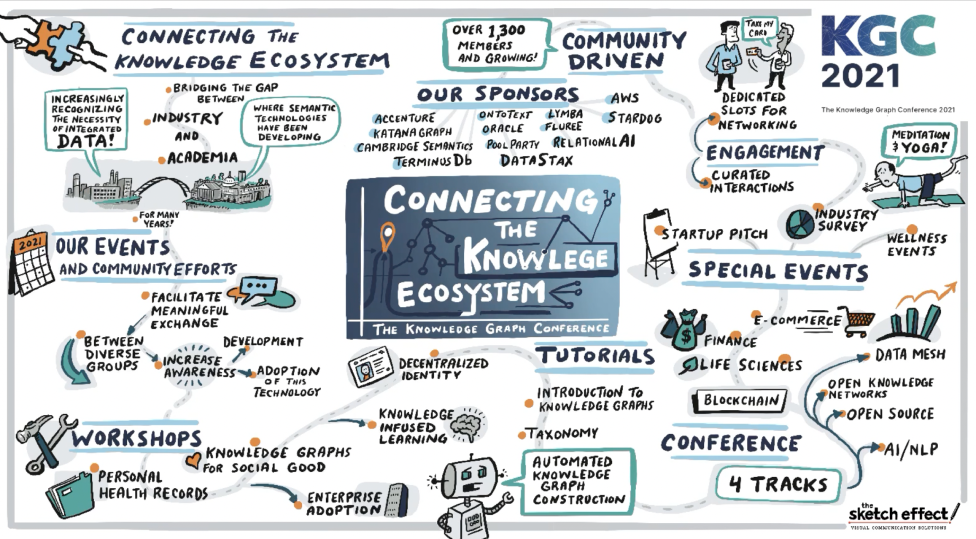 CONNECTING THE
KNOWLEDGE ECOSYSTEM
BRIDGING THE GAP
BETWEEN
INDUSTRY
AND
ACADEMIA
INCREASINGLY
RECOGNIZING
THE NECESSITY
OF INTEGRATED
DATA!
WHERE SEMANTIC
TECHNOLOGIES
HAVE BEEN
DEVELOPING
FOR MANY
YEARS!
2021
OUR EVENTS
AND COMMUNITY EFFORTS
FACILITATE
MEANINGFUL
EXCHANGE
BETWEEN
DIVERSE
GROUPS
INCREASE
AWARENESS
DEVELOPMENT
ADOPTION
OF THIS
TECHNOLOGY
WORKSHOPS
PERSONAL
HEALTH RECORDS
KNOWLEDGE GRAPHS
FOR SOCIAL GOOD
ENTERPRISE
ADOPTION
KNOWLEDGE
INFUSED
LEARNING
DECENTRALIZED
IDENTITY
OVER 1,300
MEMBERS
AND GROWING!
COMMUNITY
DRIVEN
OUR SPONSORS
ACCENTURE
KATANAGRAPH
CAMBRIDGE SEMANTICS
TERMINUSDb
ONTOTEXT
ORACLE
POOLPARTY
DATASTAX
LYMBA
FLUREE
RELATIONALAI
AWS
STARDOG
CONNECTING
THE
KNOWLEGE
ECOSYSTEM
THE KNOWLEDGE GRAPH CONFERENCE
TUTORIALS
INTRODUCTION TO
KNOWLEDGE GRAPHS
TAXONOMY
AUTOMATED
KNOWLEDGE
GRAPH
CONSTRUCTION
TAKE MY
CARD
DEDICATED
SLOTS FOR
NETWORKING
ENGAGEMENT
CURATED
INTERACTIONS
KGC
2021
The Knowledge Graph Conference 2021
MEDITATION
& YOGA!
STARTUP PITCH
INDUSTRY
SURVEY
WELLNESS
EVENTS
SPECIAL EVENTS
$
FINANCE
E-COMMERCE
LIFE SCIENCES
DATA MESH
BLOCKCHAIN
OPEN KNOWLEDGE
NETWORKS
OPEN SOURCE
AI/NLP
CONFERENCE
4 TRACKS
the
sketch effect
VISUAL COMMUNICATION SOLUTIONS